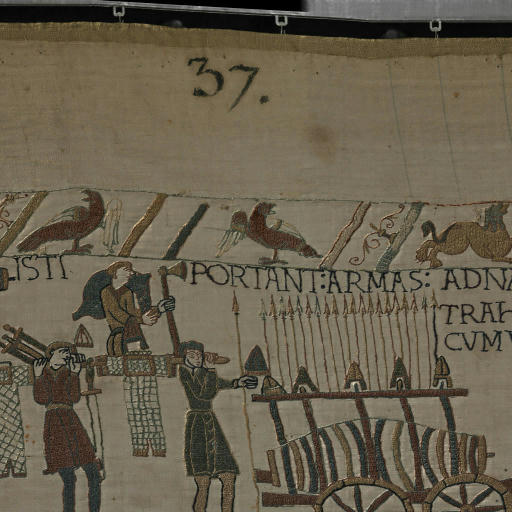 37.
ISTI PORTANT: ARMAS: ADNA
TRAH
CVM